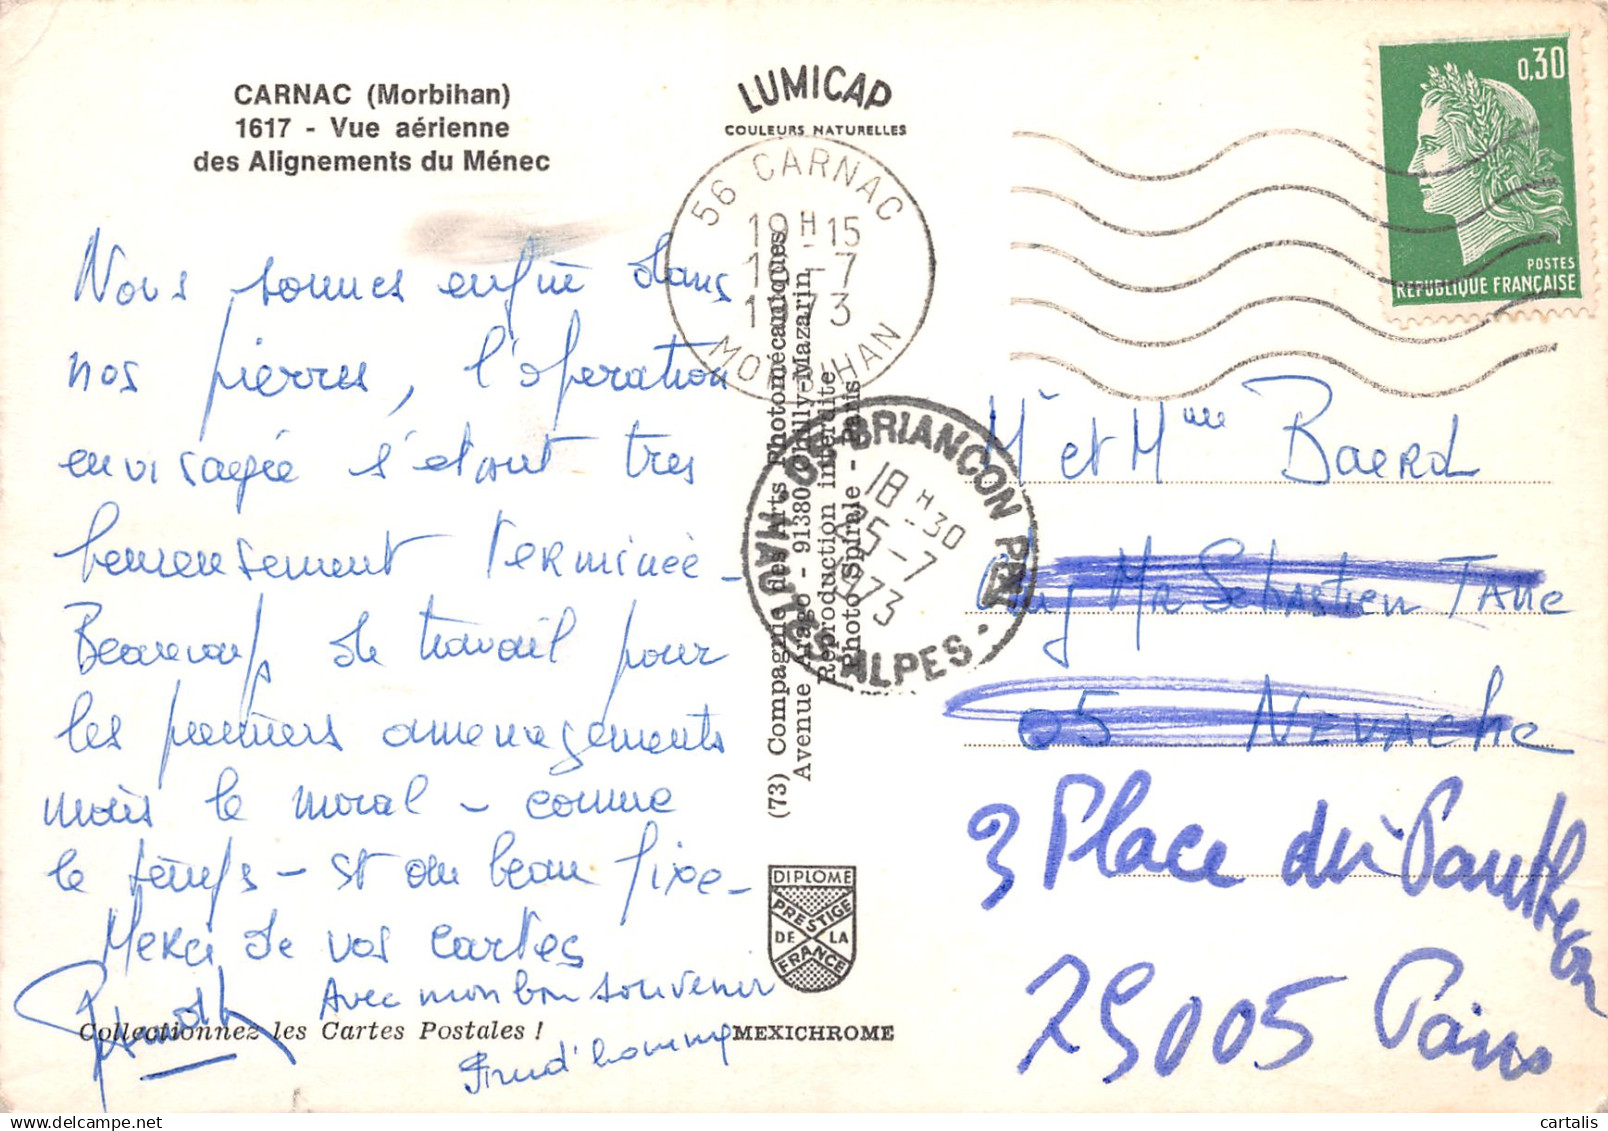 CARNAC (Morbihan)
1617 - Vue aérienne
des Alignements du Ménec
LUMICAP
COULEURS NATURELLES
56 CARNAC
19 H 15
-7
1973
MORBIHAN
0,30
POSTES
REPUBLIQUE FRANÇAISE
Nous sommes enfin dans
nos pierres, l'opération
envisagée s'étant très
heureusement terminée -
Beaucoup de travail pour
les premiers aménagements
mais le moral - comme
le temps - est au beau fixe -
Merci de vos cartes
Avec mon bon souvenir
Prud'homme
05 BRIANCON
18 H 30
25-7
1973
HAUTES-ALPES
(73) Compagnie des Arts Photomécaniques
Avenue Arago - 91380 Chilly-Mazarin
Reproduction interdite
Photo Spirale - Paris
DIPLOME
PRESTIGE
DE LA
FRANCE
Collectionnez les Cartes Postales !
MEXICHROME
Mr et Mme Baerd
Mr Sébastien
05 Nevache
3 Place du Panthéon
75005 Paris
cartalis